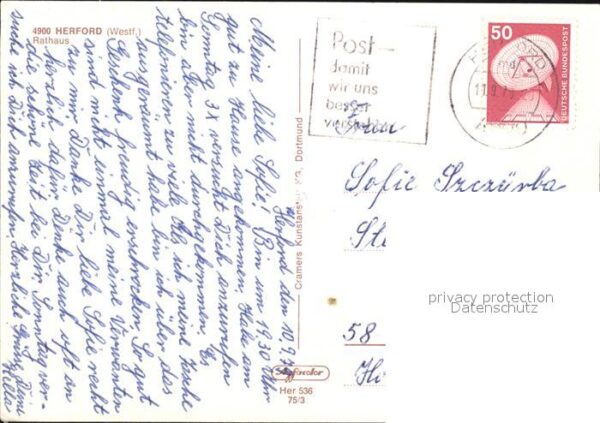 4900 HERFORD (Westf.)
Rathaus
Herford den 10.9.
Meine liebe Sofie! Bin um 19.30 Uhr
gut zu Hause angekommen. Habe am
Sonntag 3x versucht Dich anzurufen
bin aber nicht durchgekommen. Es
telefonieren zu viele. Als ich meine Tasche
ausgeräumt habe bin ich über das
Geschenk freudig erschrocken. So gut
sind nicht einmal meine Verwandten
zu mir. Danke Dir liebe Sofie recht
herzlich dafür. Denke auch oft an
die schöne Zeit bei Dir. Sonntag ver-
suche ich Dich anzurufen. Herzliche Grüße Deine
Hella
Cramers Kunstanstalt KG, Dortmund
Skyficolor
Her 536
75/3
Post –
damit
wir uns
besser
verstehen
50
DEUTSCHE BUNDESPOST
HERFORD
11.9.
Frau
Sofie Szczürba
St
58
Ho
privacy protection
Datenschutz